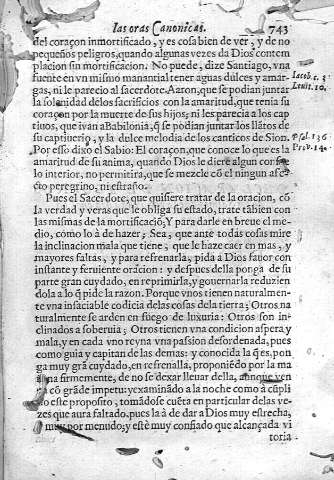 las oras Canonicas. 743
del coraçon inmortificado, y es cosa bien de ver, y de no
pequeños peligros, quando algunas vezes da Dios contem
placion sin mortificacion. No puede, dize Santiago, vna
fuente en vn mismo manantial tener aguas dulces y amar-
gas, ni le parecio al sacerdote Aaron, que se podian juntar
la solenidad dẽlos sacrificios con la amaritud, que tenia su
coraçon por la muerte de sus hijos; ni les parecia a los cap
tiuos, que ivan a Babilonia, q̃ se podian juntar los llãtos de
su captiuerio, y la dulce melodia de los canticos de Sion.
Por esso dixo el Sabio: El coraçon, que conoce lo que es la
amaritud de su anima, quando Dios le diere algun consue
lo interior, no permitira, que se mezcle cõ el ningun afe-
cto peregrino, ni estraño.
Iacob. c. 3.
Leuit. 10.
Psal. 136
Prov. 14.
Pues el Sacerdote, que quisiere tratar de la oracion, cõ
la verdad y veras que le obliga su estado, trate tãbien con
las mismas de la mortificaciõ; Y para darle en breue el me-
dio, como lo à de hazer; Sea, que ante todas cosas mire
la inclinacion mala que tiene, que le haze caer en mas, y
mayores faltas, y para refrenarla, pida à Dios fauor con
instante y feruiente oracion: y despues della ponga de su
parte gran cuydado, en reprimirla, y gouernarla reduzien
dola a lo q̃ pide la razon. Porque vnos tienen naturalmen-
te vna insaciable codicia delas cosas dela tierra; Otros na
turalmente se arden en fuego de luxuria: Otros son in-
clinados a soberuia; Otros tienen vna condicion aspera y
mala, y en cada vno reyna vna passion desordenada, pues
como guia y capitan de las demas: y conocida la q̃ es, pon
ga muy grã cuydado, en refrenalla, proponiẽdo por la ma
vna firmemente, de no se dexar lleuar della, aunque ven
cõ grãde impetu: y examinado a la noche como à cũpli
este proposito, tomãdose cuẽta en particular delas ve-
zes que aura faltado, pues la à de dar a Dios muy estrecha,
muy por menudo; y estè muy confiado que alcançada vi
toria